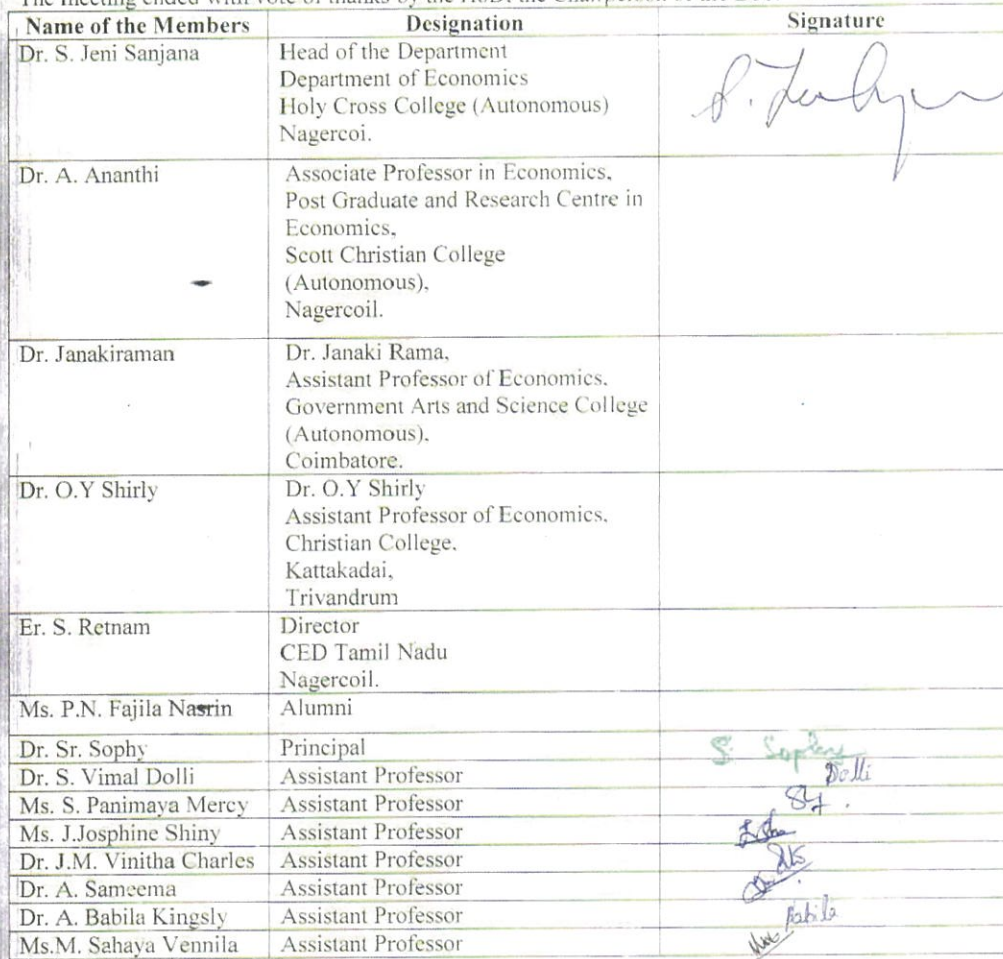 The meeting ended with vote of thanks by the HoD, the Chairperson of the
Name of the Members Designation Signature
Dr. S. Jeni Sanjana Head of the Department
Department of Economics
Holy Cross College (Autonomous)
Nagercoi.
Dr. A. Ananthi Associate Professor in Economics,
Post Graduate and Research Centre in
Economics,
Scott Christian College
(Autonomous),
Nagercoil.
Dr. Janakiraman Dr. Janaki Rama,
Assistant Professor of Economics.
Government Arts and Science College
(Autonomous).
Coimbatore.
Dr. O.Y Shirly Dr. O.Y Shirly
Assistant Professor of Economics.
Christian College.
Kattakadai,
Trivandrum
Er. S. Retnam Director
CED Tamil Nadu
Nagercoil.
Ms. P.N. Fajila Nasrin Alumni
Dr. Sr. Sophy Principal S. Sophy
Dr. S. Vimal Dolli Assistant Professor Dolli
Ms. S. Panimaya Mercy Assistant Professor
Ms. J.Josphine Shiny Assistant Professor
Dr. J.M. Vinitha Charles Assistant Professor
Dr. A. Sameema Assistant Professor
Dr. A. Babila Kingsly Assistant Professor Babila
Ms.M. Sahaya Vennila Assistant Professor